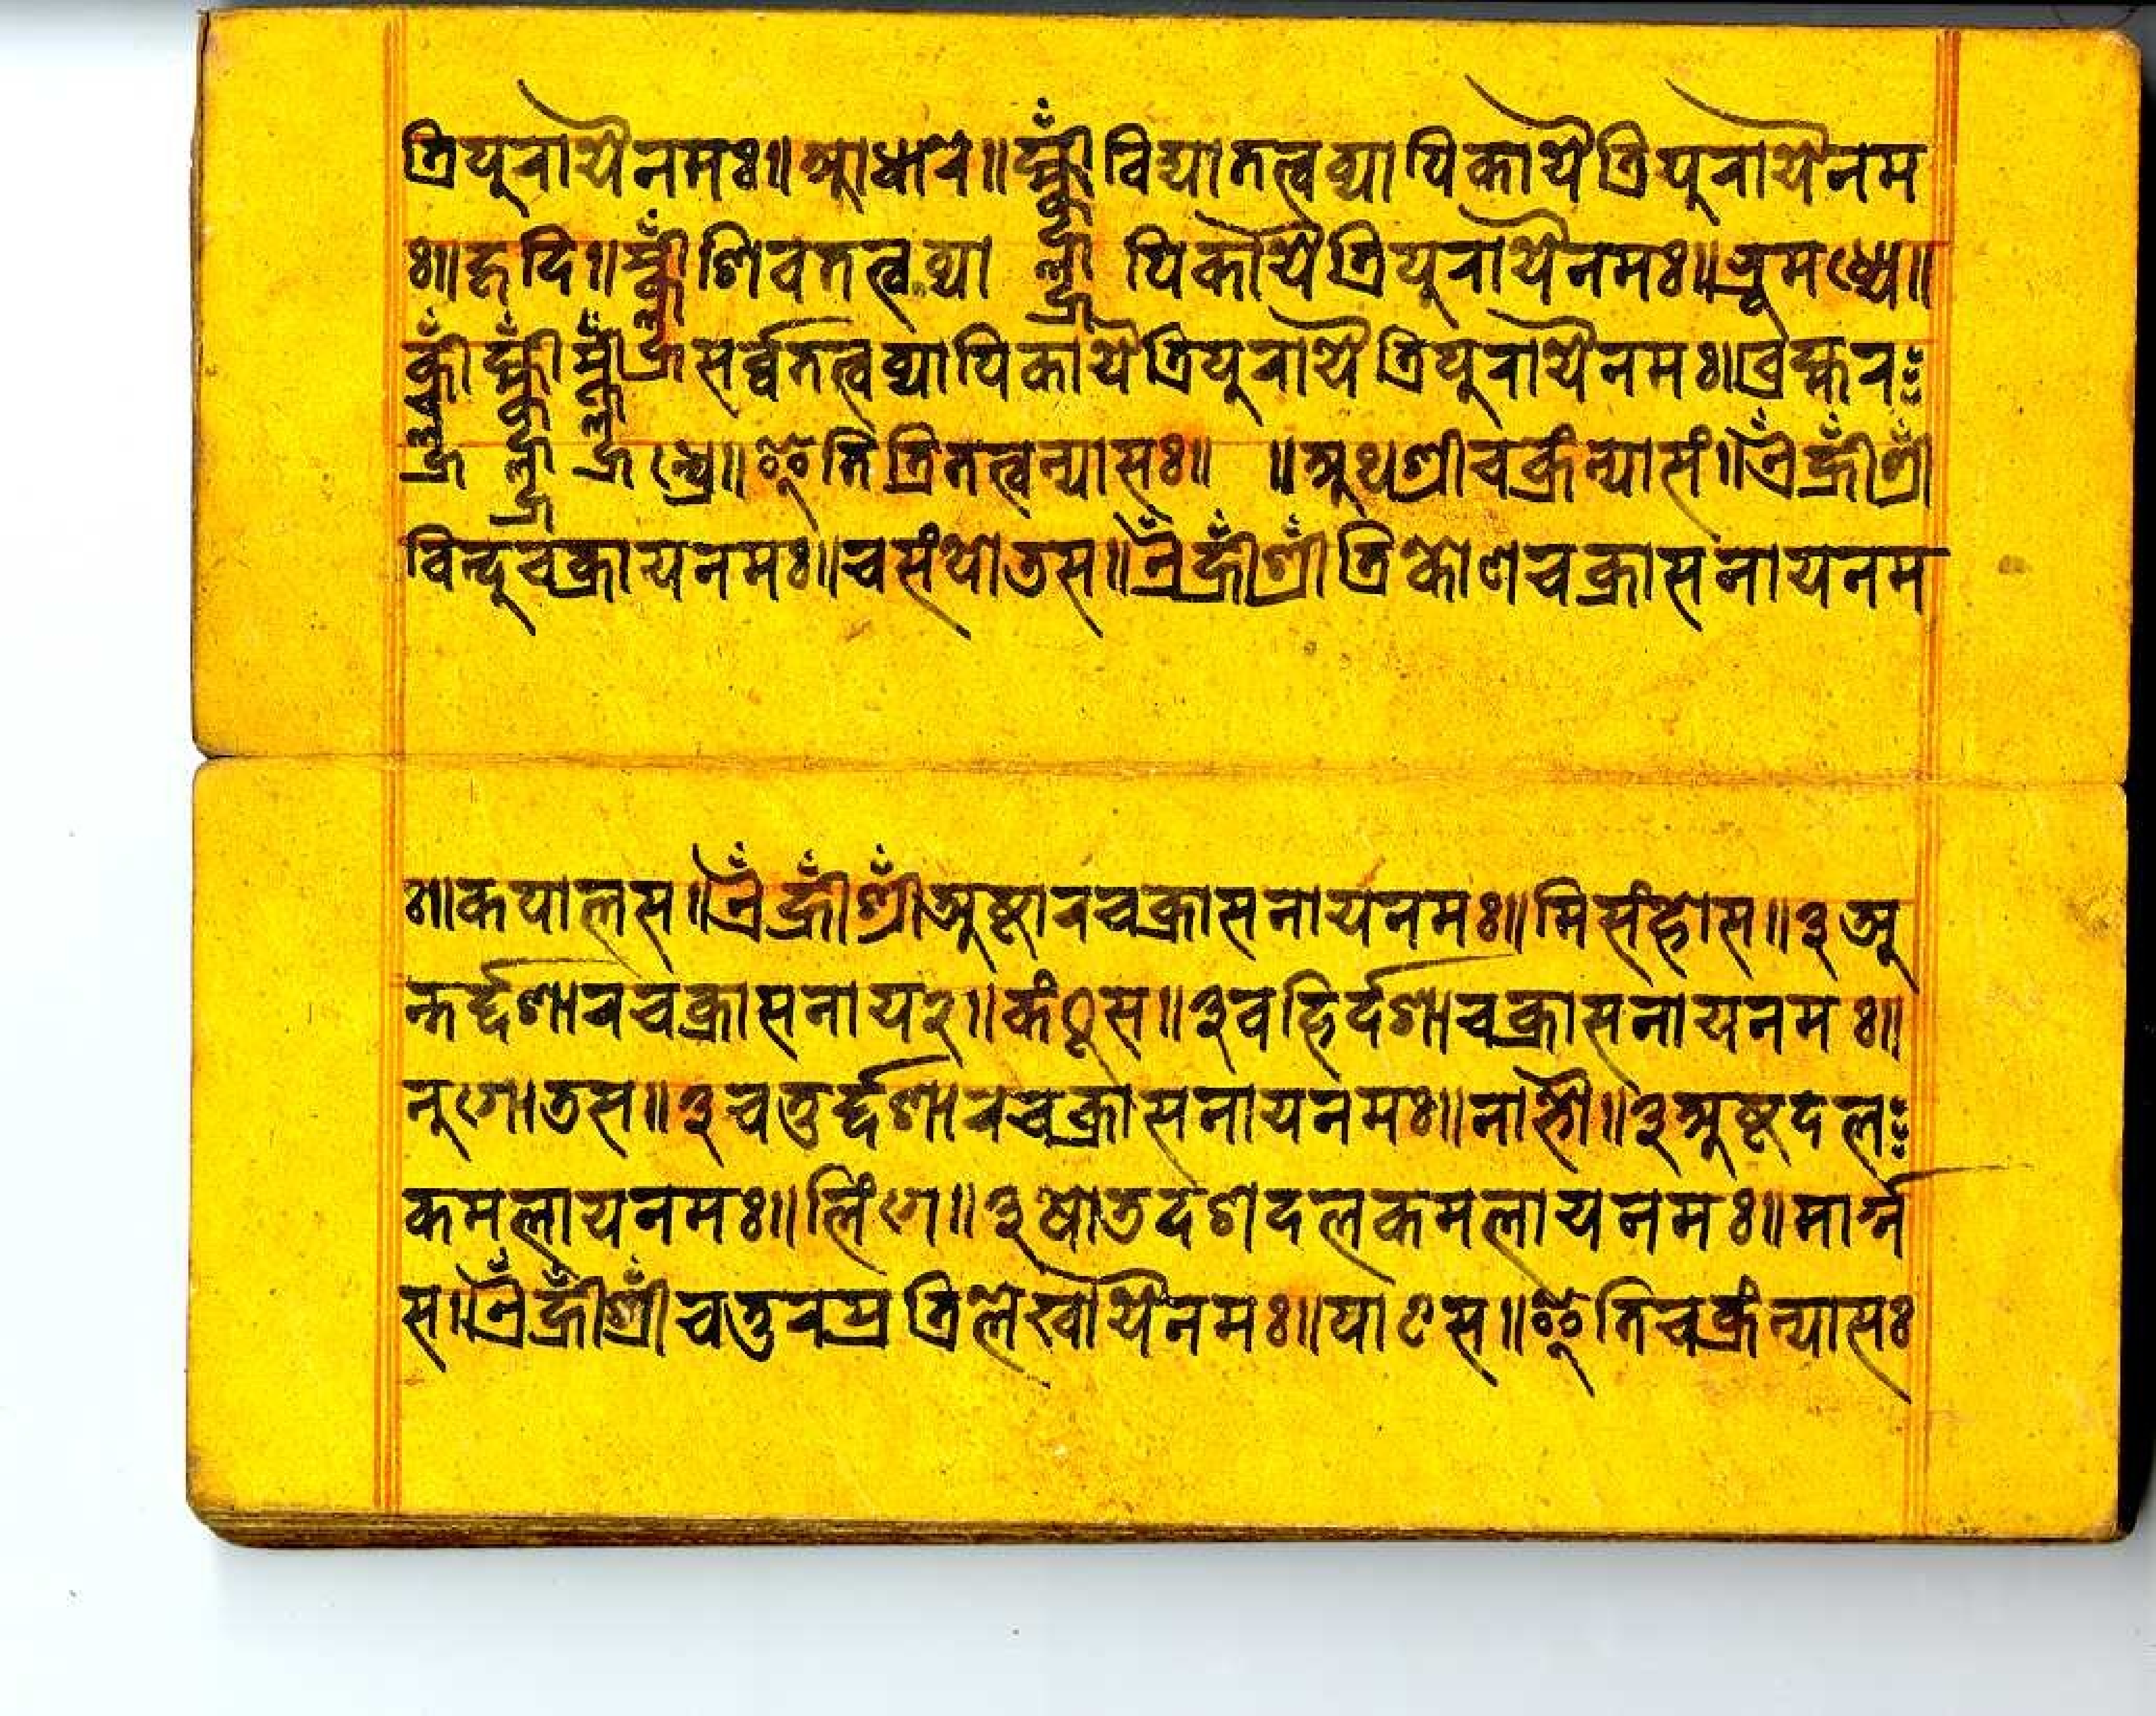 त्रिपुरायै नमः॥ आधारे॥ विद्यातत्त्वव्यापिकायै त्रिपुरायै नम
ः॥ हृदि॥ शिवतत्त्वव्या पिकायै त्रिपुरायै नमः॥ भ्रूमध्ये॥
सर्व्वतत्त्वव्यापिकायै त्रिपुरायै त्रिपुरायै नमः॥ ब्रह्मर
न्ध्रे॥ इति त्रितत्त्वन्यासः॥ ॥ अथ श्रीचक्रंन्यासं॥ ऐँ ह्रीँ श्रीँ
विन्दुचक्रायनमः॥ चसंथोतस॥ ऐँ ह्रीँ श्रीँ त्रिकोणचक्रासनायनम
ः॥ कपालस॥ ऐँ ह्रीँ श्रीँ अष्टारचक्रासनायनमः॥ मिसंह्नोस॥ ३ अ
न्तर्द्दशारचक्रासनाय२॥ कंठूस॥ ३ वहिर्दशाचक्रासनायनमः॥
नुगोतस॥ ३ चतुर्द्दशारचक्रासनायनमः॥ नाभौ॥ ३ अष्टदल
कमलायनमः॥ लिंगे॥ ३ षोतदशदलकमलायनमः॥ मार्ग्न
स॥ ऐँ ह्रीँ श्रीँ चतुरस्रत्रिलेखायैनमः॥ पाठस॥ इति चक्रंन्यासः